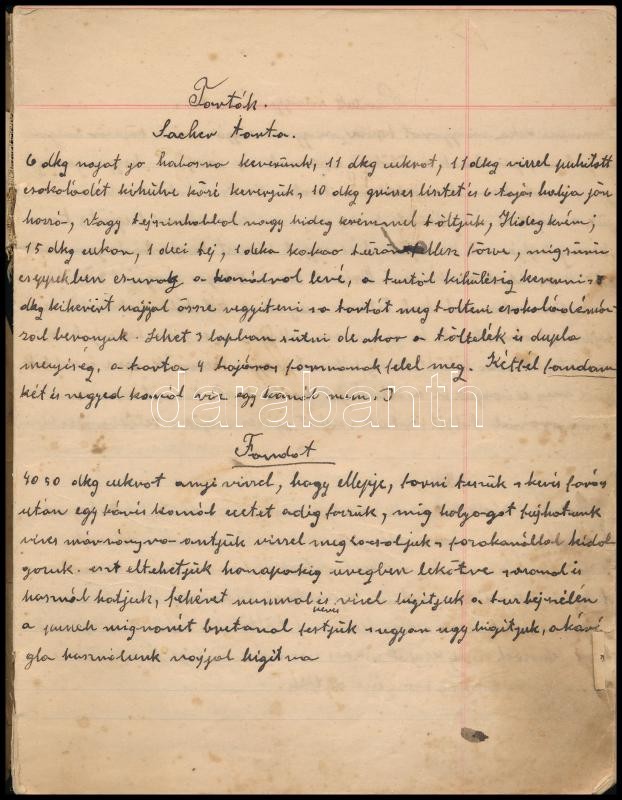 Torták.
Sacher torta.
6 dkg vajat jó habosra keverünk, 11 dkg cukrot, 11 dkg vizzel puhitott
csokoládét kihülve köré keverjük, 10 dkg grizes lisztet és 6 tojás habja jön
hozzá, vagy tejszinhabbal vagy hideg krémmel töltjük, Hideg krém;
15 dkg cukor, 1 deci tej, 1 deka kakao tüzön lesz főzve, mig sürün
cseppekben csurog a kanálrol levé, a tüztöl kihülésig keverni
dkg kikevert vajjal össze vegyiteni s a tortát meg tölteni csokoládémá-
zzal bevonjuk. Lehet 3 lapban sütni de akor a töltelék is dupla
menyiség, a torta 4 tojásos formanak felel meg. Kétfél fondan
két és negyed kanál viz egy kanál rum.
Fondot
40 50 dkg cukrot anyi vizzel, hogy ellepje, forni teszük s kevés forás
után egy kávés kanál ecetet adig fözzük, mig holyagot fujhatunk
vizes márványra öntjük vizzel meg locsoljuk s fozokanállal kidol-
gozuk. ezt eltehetjük honapokig üvegben lekötve s onnal is
használhatjuk, fehéret rummal és kevés vizel higitjuk a turbejszélén
a puncsh mignonét bretonal festjük s ugyan ugy higitjuk, a kávé
gla használunk vajjal higitva
darabanth